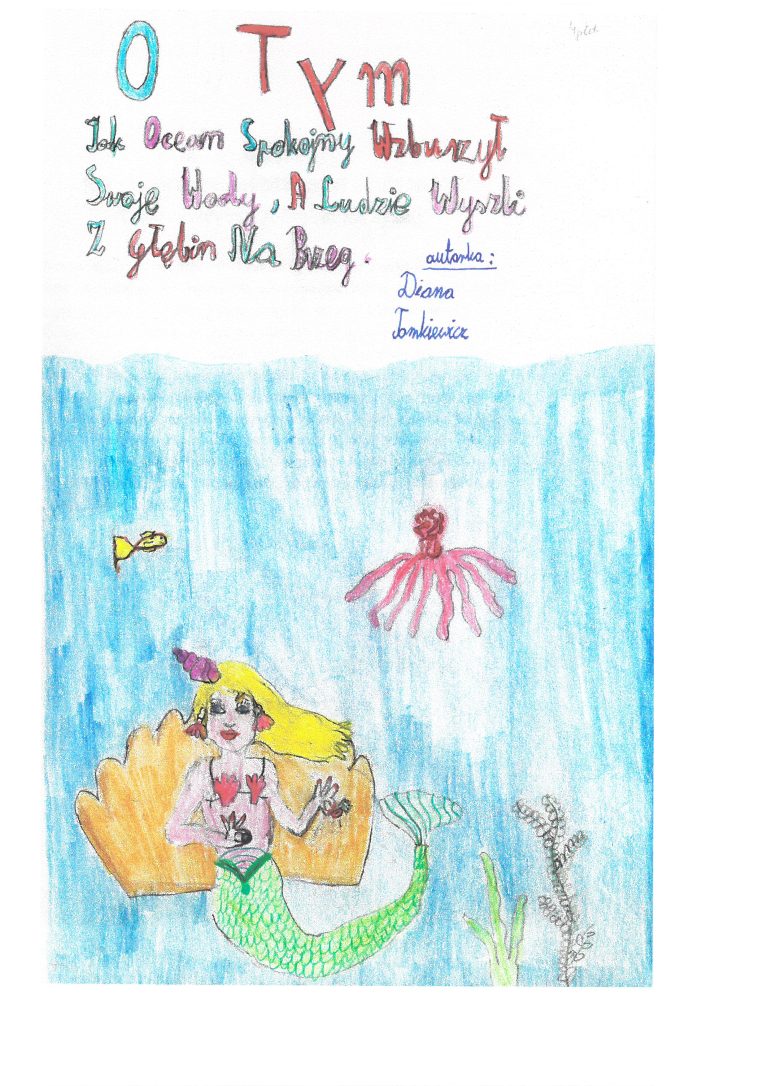 O Tym
Jak Ocean Spokojny Wzburzył
Swoje Wody, A Ludzie Wyszli
Z Głębin Na Brzeg.
autorka:
Diana
Tomkiewicz